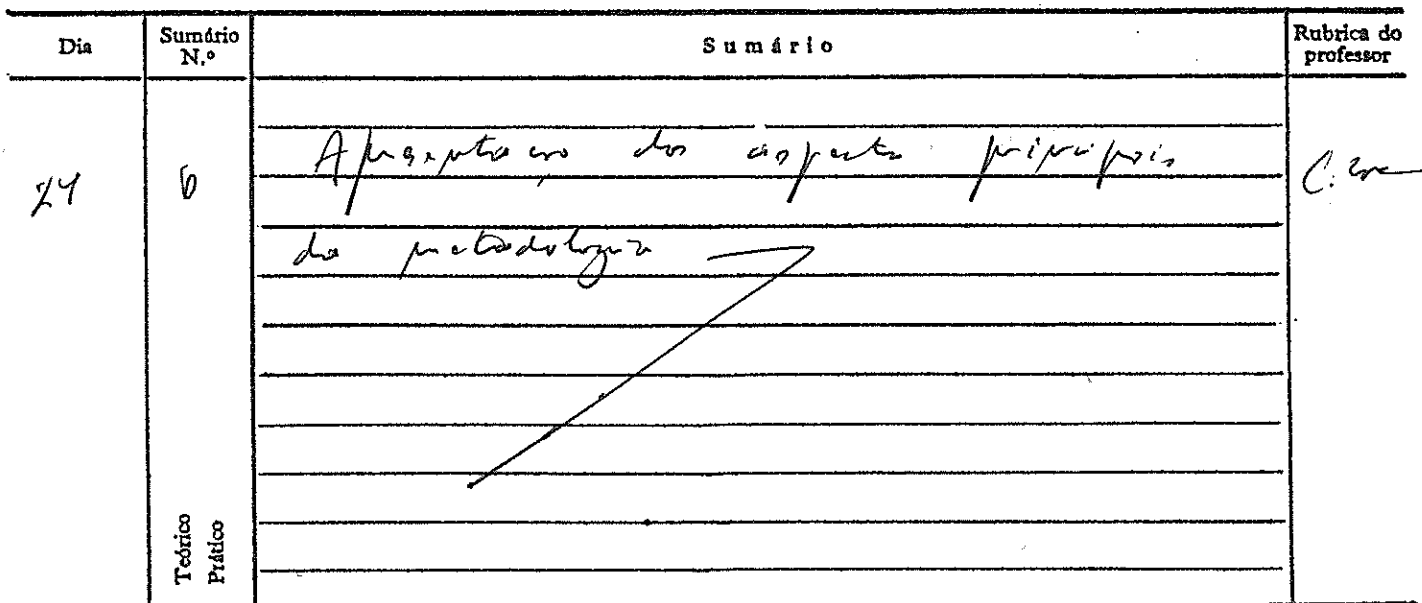 Dia
Sumário N.º
Sumário
Rubrica do professor
24
6
Apresentação dos aspectos principais
da metodologia
Teórico
Prático